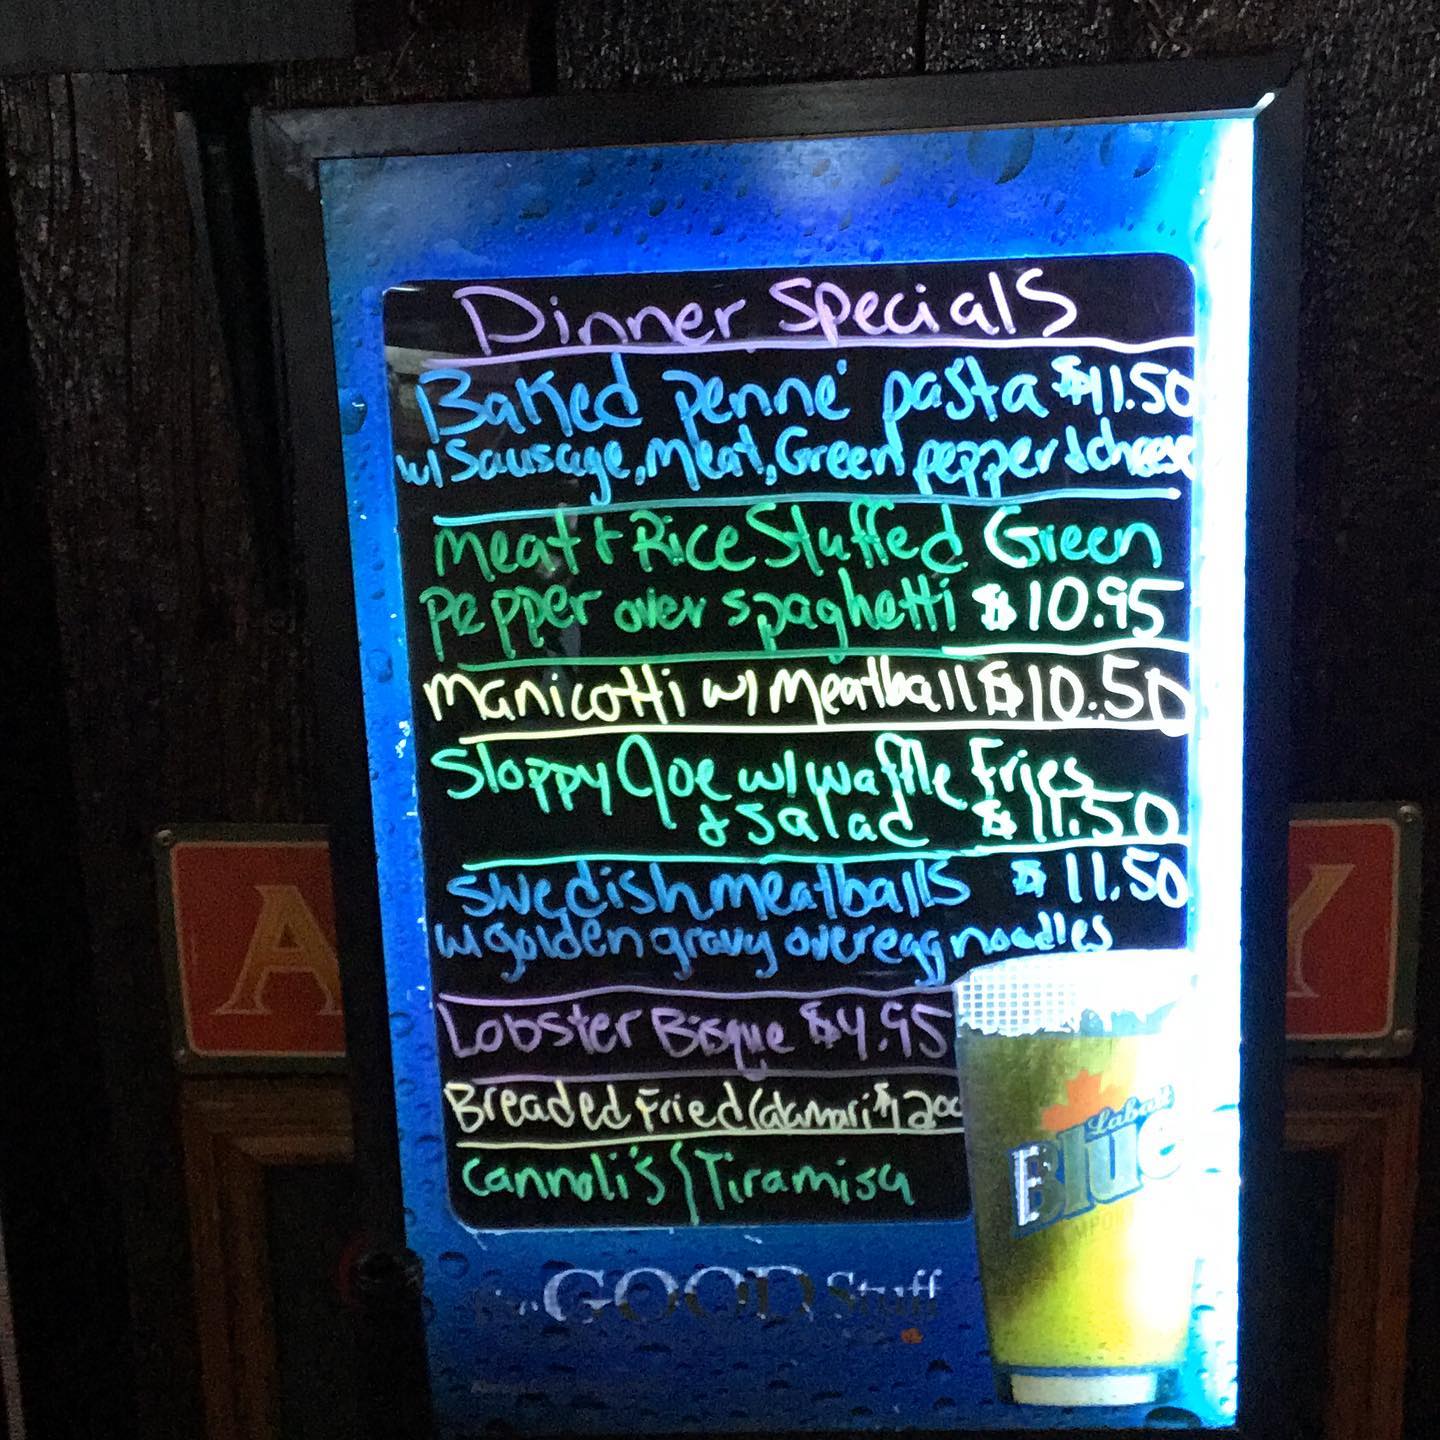 Dinner Specials
Baked penné pasta $11.50
w/ Sausage, Meat, Green pepper & cheese
Meat & Rice Stuffed Green
Pepper over spaghetti $10.95
Manicotti w/ Meatball $10.50
Sloppy Joe w/ waffle Fries
& Salad $11.50
Swedish meatballs $11.50
w/ golden gravy over egg noodles
Lobster Bisque $4.95
Breaded Fried Calamari $12.00
Cannoli's / Tiramisa
GOOD Stuff
Labatt
Blue
A
Y